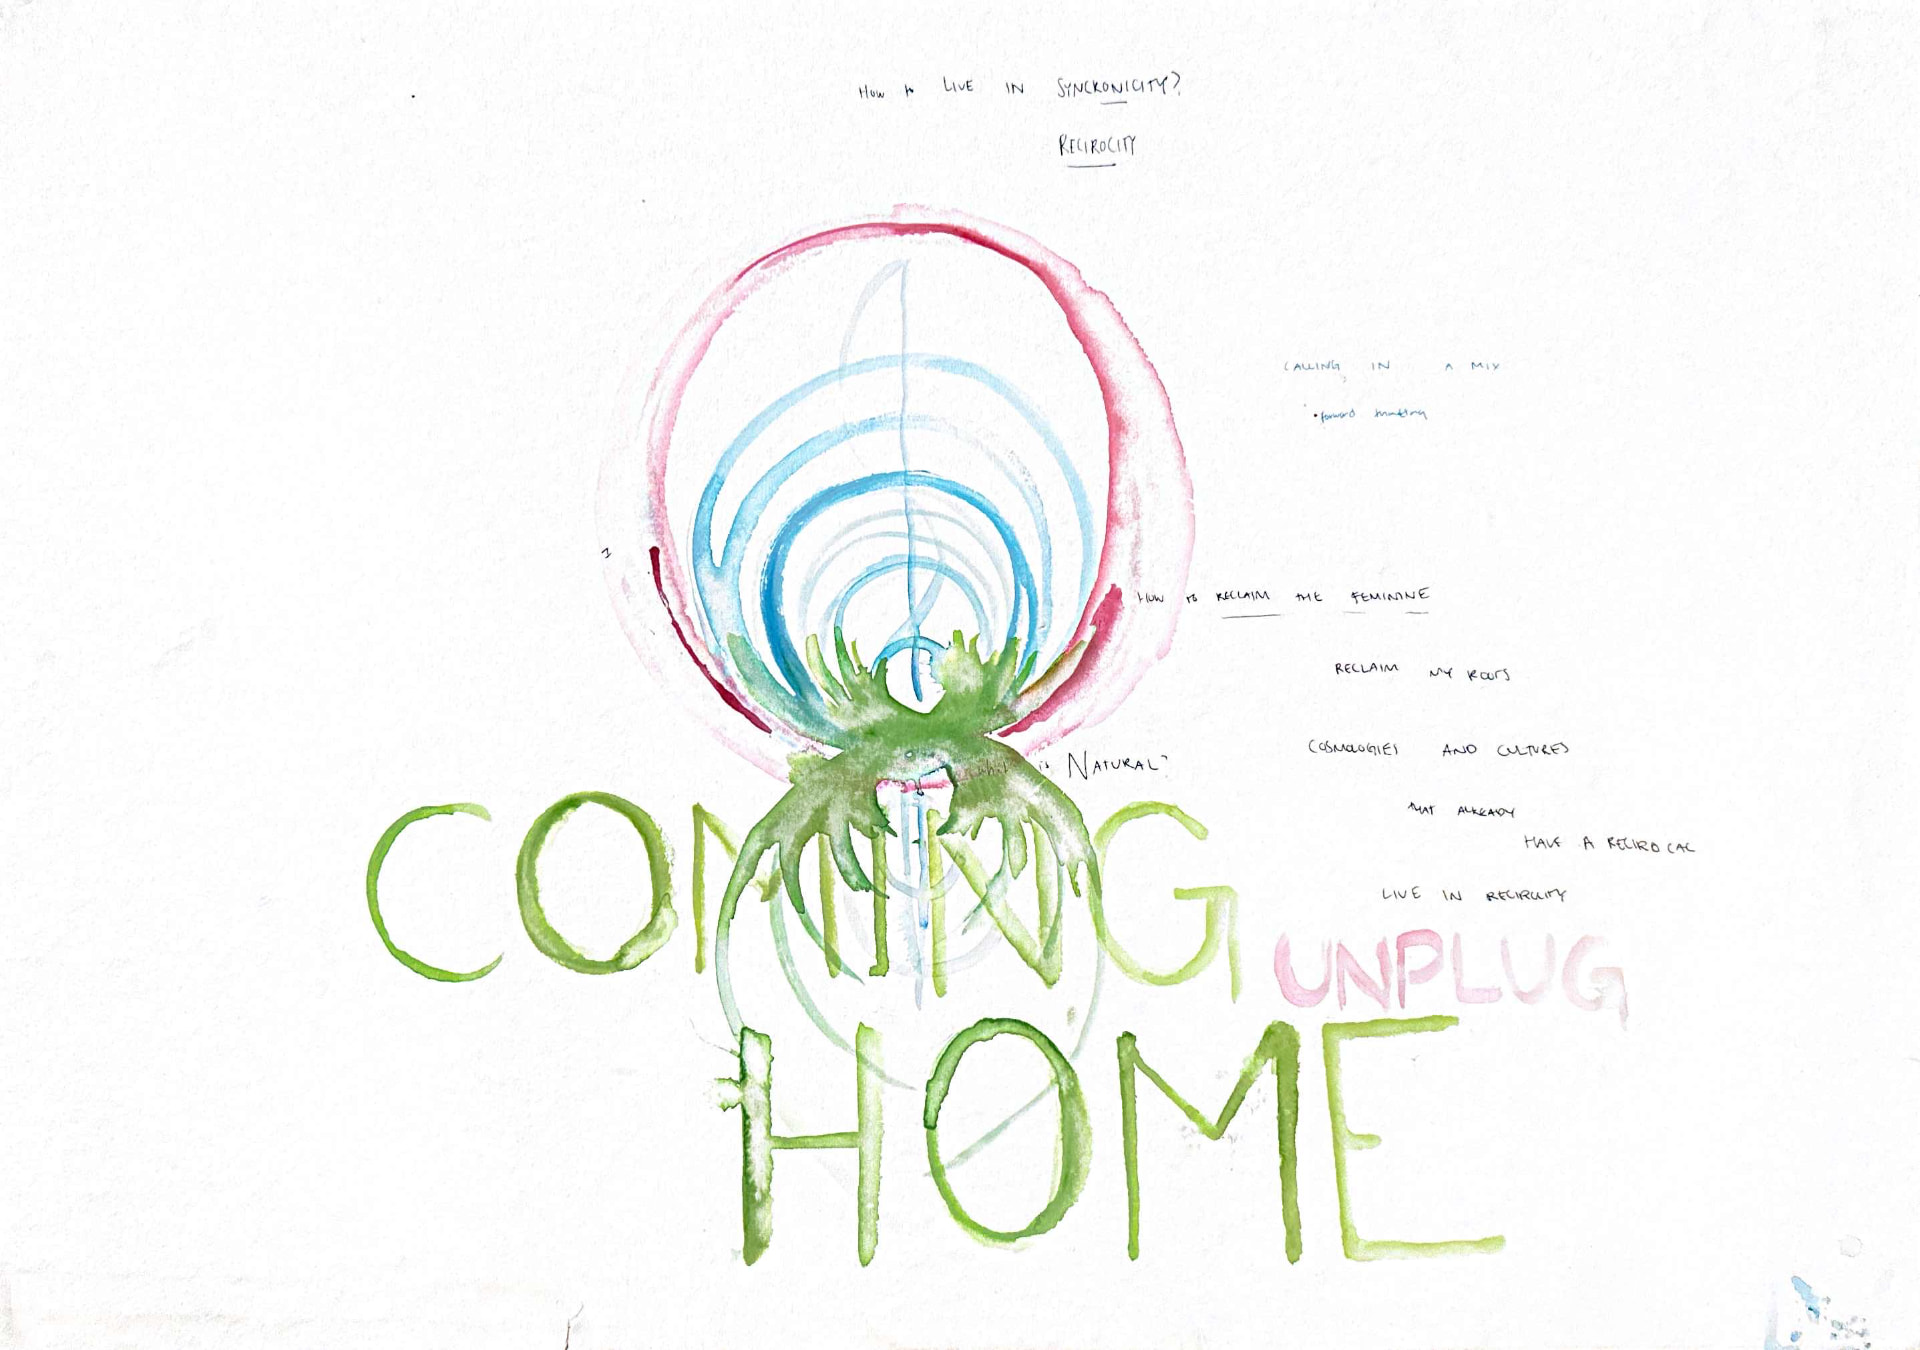 How to LIVE IN SYNCKONICITY?
RECIROCITY
CALLING IN A MIX
• forward thinking
HOW TO RECLAIM THE FEMININE
RECLAIM MY ROOTS
COSMOLOGIES AND CULTURES
is NATURAL?
THAT ALREADY
HAVE A RECIROCAL
LIVE IN RECIRCUITY
COMING
UNPLUG
HOME